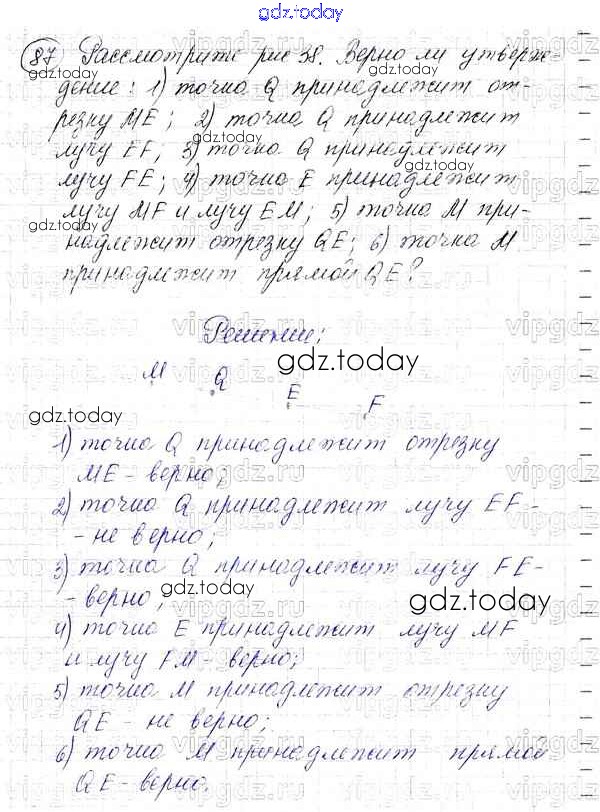 gdz.today
87 Рассмотрите рис 38. Верно ли утверж-
дение: 1) точка Q принадлежит от-
резку ME; 2) точка Q принадлежит
лучу EF; 3) точка Q принадлежит
лучу FE; 4) точка E принадлежит
лучу MF и лучу EM; 5) точка M при-
надлежит отрезку QE; 6) точка M
принадлежит прямой QE?
Решение:
gdz.today
M Q E F
gdz.today
1) точка Q принадлежит отрезку
ME - верно;
2) точка Q принадлежит лучу EF -
- не верно;
3) точка Q принадлежит лучу FE -
- верно;
gdz.today
4) точка E принадлежит лучу MF
и лучу FM - верно;
5) точка M принадлежит отрезку
QE - не верно;
6) точка M принадлежит прямой
QE - верно.